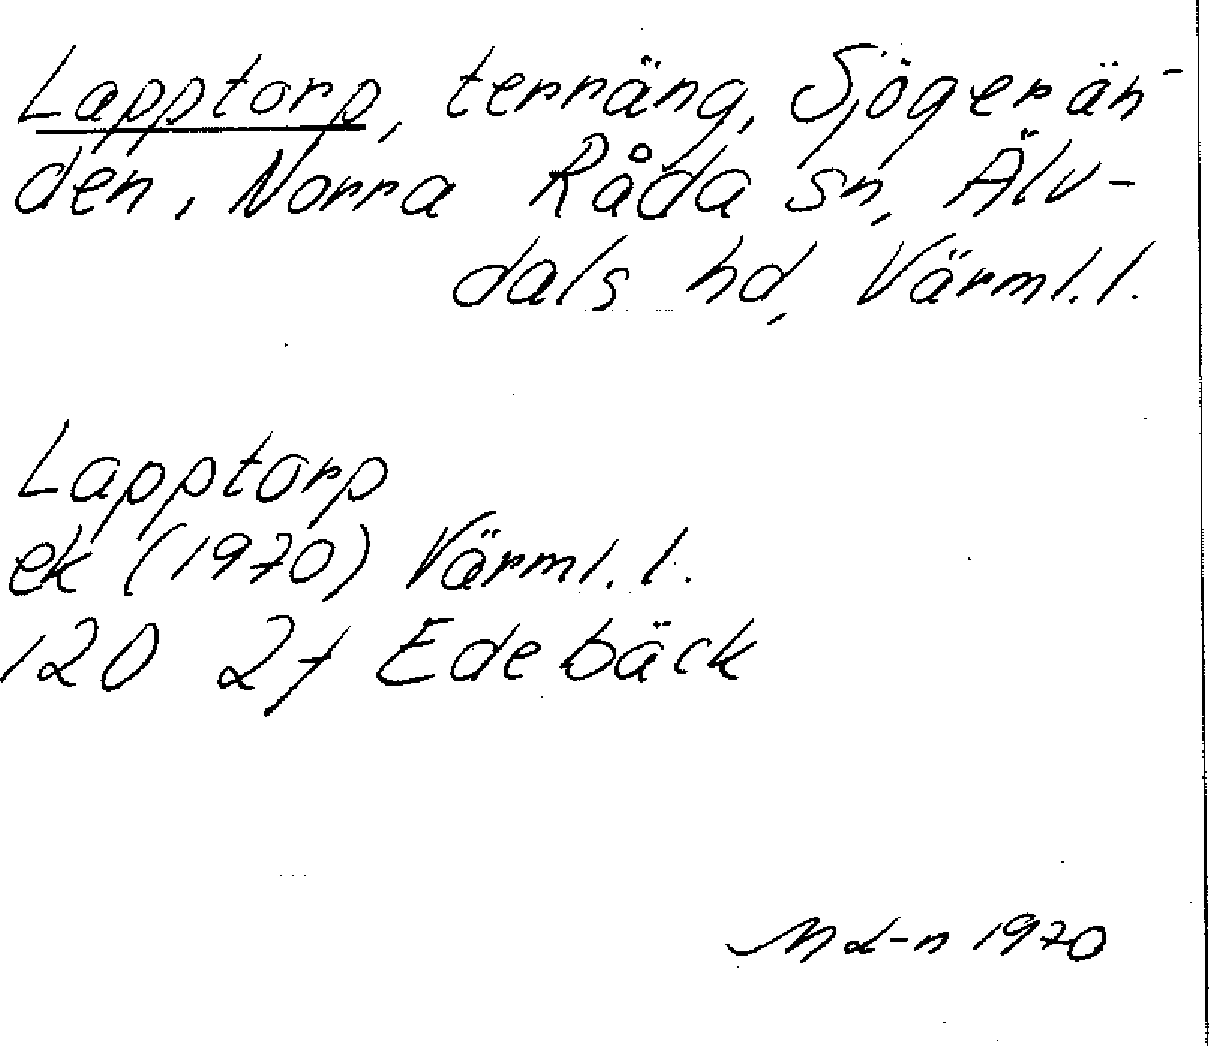 Lapptorp, terräng, Sjögerän-
den, Norra Råda sn, Älv-
dals hd, Värml.l.
Lapptorp
ek (1970) Värml. l.
120 2f Edebäck
1970